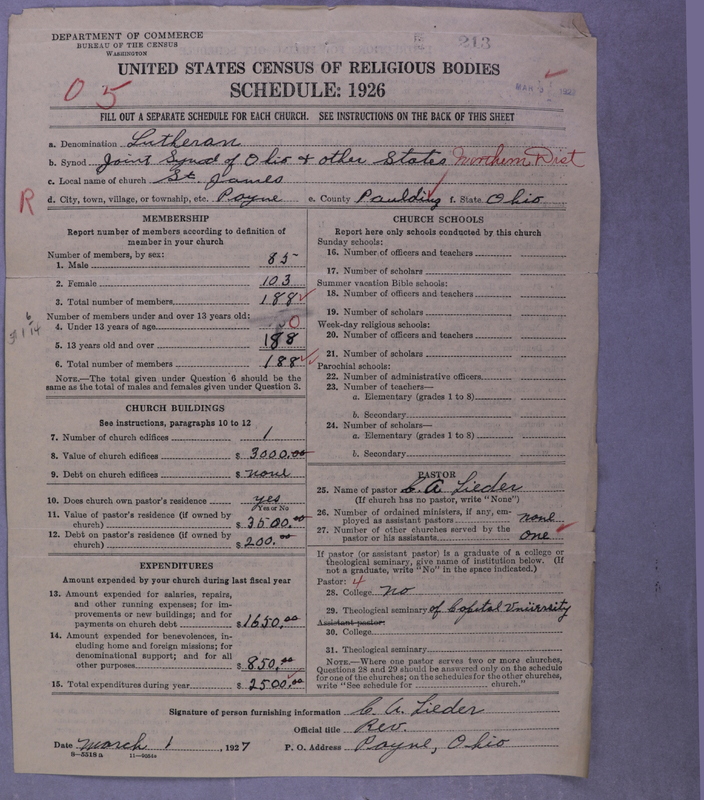 DEPARTMENT OF COMMERCE
BUREAU OF THE CENSUS
WASHINGTON
213
UNITED STATES CENSUS OF RELIGIOUS BODIES
SCHEDULE: 1926
0 5
MAR 3 1927
FILL OUT A SEPARATE SCHEDULE FOR EACH CHURCH. SEE INSTRUCTIONS ON THE BACK OF THIS SHEET
a. Denomination Lutheran
b. Synod Joint Synod of Ohio & other States Northern Dist
c. Local name of church St. James
R
d. City, town, village, or township, etc. Payne e. County Paulding f. State Ohio
MEMBERSHIP
Report number of members according to definition of
member in your church
Number of members, by sex:
1. Male 85
2. Female 103
3. Total number of members 188
Number of members under and over 13 years old:
4. Under 13 years of age 0
5. 13 years old and over 188
6. Total number of members 188
NOTE.—The total given under Question 6 should be the
same as the total of males and females given under Question 3.
CHURCH BUILDINGS
See instructions, paragraphs 10 to 12
7. Number of church edifices 1
8. Value of church edifices $ 3000.00
9. Debt on church edifices $ none
10. Does church own pastor's residence yes
Yes or No
11. Value of pastor's residence (if owned by
church) $ 3500.00
12. Debt on pastor's residence (if owned by
church) $ 200.00
EXPENDITURES
Amount expended by your church during last fiscal year
13. Amount expended for salaries, repairs,
and other running expenses; for im-
provements or new buildings; and for
payments on church debt $ 1650.00
14. Amount expended for benevolences, in-
cluding home and foreign missions; for
denominational support; and for all
other purposes $ 850.00
15. Total expenditures during year $ 2500.00
CHURCH SCHOOLS
Report here only schools conducted by this church
Sunday schools:
16. Number of officers and teachers
17. Number of scholars
Summer vacation Bible schools:
18. Number of officers and teachers
19. Number of scholars
Week-day religious schools:
20. Number of officers and teachers
21. Number of scholars
Parochial schools:
22. Number of administrative officers
23. Number of teachers—
a. Elementary (grades 1 to 8)
b. Secondary
24. Number of scholars—
a. Elementary (grades 1 to 8)
b. Secondary
PASTOR
25. Name of pastor C. A. Lieder
(If church has no pastor, write "None")
26. Number of ordained ministers, if any, em-
ployed as assistant pastors none
27. Number of other churches served by the
pastor or his assistants one
If pastor (or assistant pastor) is a graduate of a college or
theological seminary, give name of institution below. (If
not a graduate, write "No" in the space indicated.)
Pastor: 4
28. College no
29. Theological seminary of Capital University
Assistant pastor:
30. College
31. Theological seminary
NOTE.—Where one pastor serves two or more churches,
Questions 28 and 29 should be answered only on the schedule
for one of the churches; on the schedules for the other churches,
write "See schedule for church."
Signature of person furnishing information C. A. Lieder
Official title Rev.
Date March 1, 1927 P. O. Address Payne, Ohio
8—5518 a